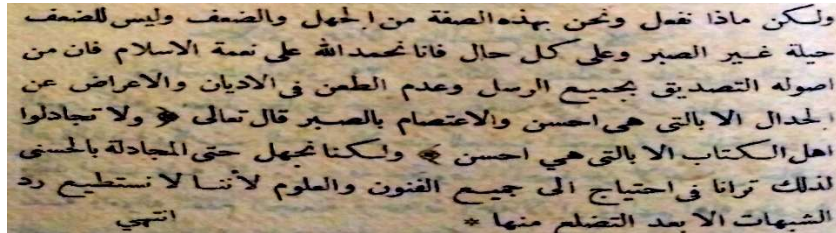 ولكن ماذا نفعل ونحن بهذه الصفة من الجهل والضعف وليس للضعف
حيلة غير الصبر وعلى كل حال فانا نحمد الله على نعمة الاسلام فان من
اصوله التصديق بجميع الرسل وعدم الطعن فى الاديان والاعراض عن
الجدال الا بالتى هى احسن والاعتصام بالصبر قال تعالى ﴿ ولا تجادلوا
اهل الكتاب الا بالتى هي احسن ﴾ ولكنا نجهل حتى المجادلة بالحسنى
لذلك ترانا فى احتياج الى جميع الفنون والعلوم لأننا لا نستطيع رد
الشبهات الا بعد التضلع منها * انتهي